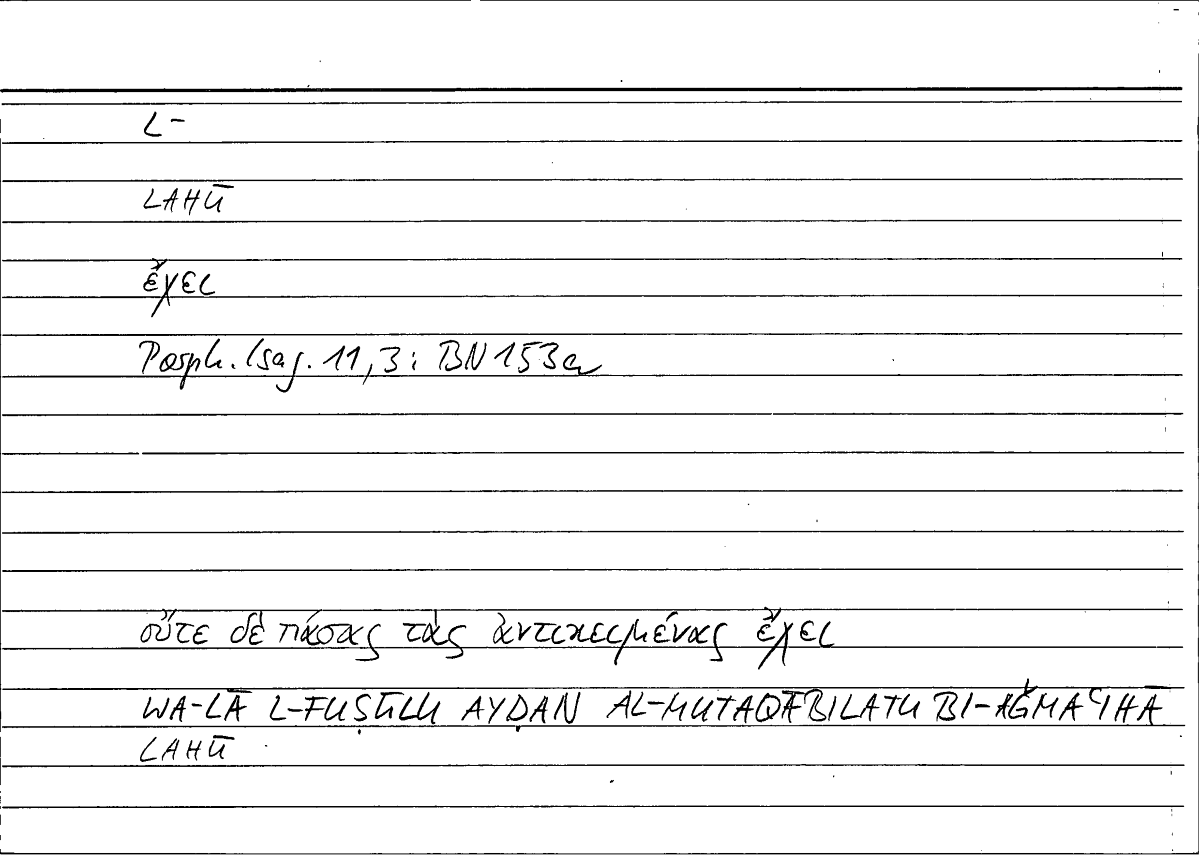 L-
LAHŪ
ἔχει
Porph. Isag. 11,3: BN 153a
οὔτε δὲ πάσας τὰς ἀντικειμένας ἔχει
WA-LĀ L-FUṢŪLU AYḌAN AL-MUTAQĀBILATU BI-AǦMAʿIHĀ
LAHŪ